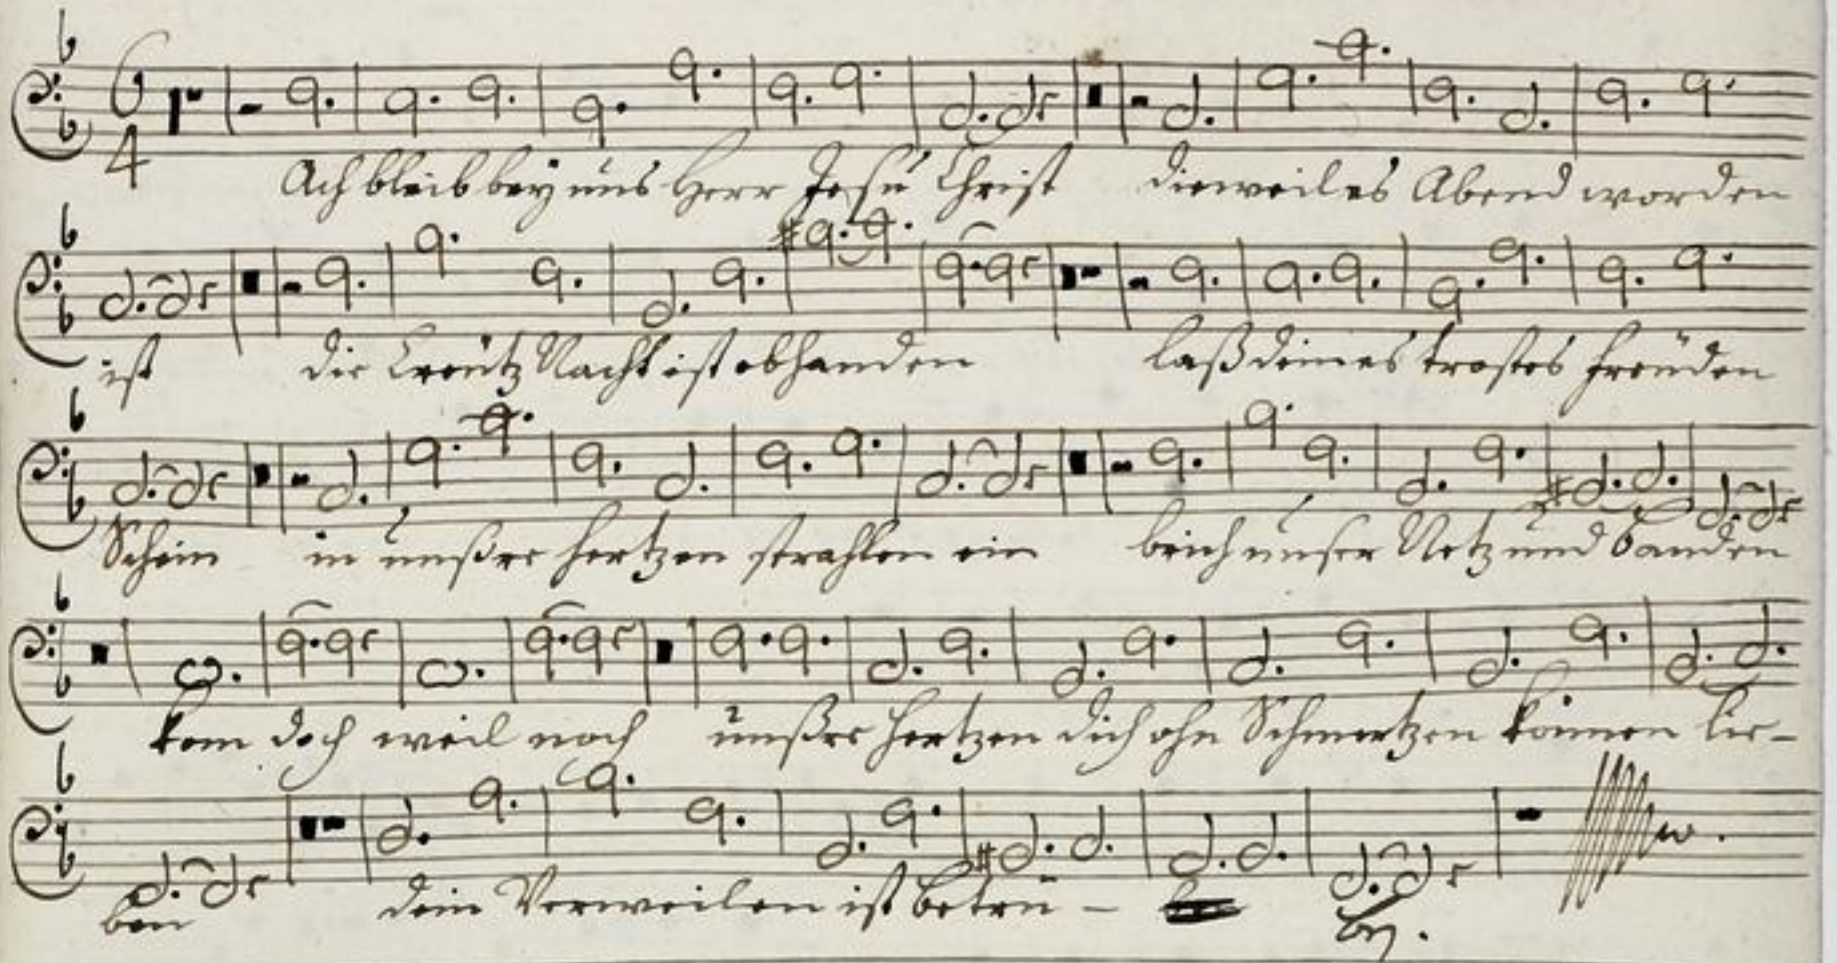 6
4
Ach bleib bey uns Herr Jesu Christ dieweil es Abend worden
ist die Creutz Nacht ist obhanden laß deines trostes freuden
Schein in unßre hertzen strahlen ein brich unser Netz und banden
kom doch weil noch unßre hertzen dich ohn Schmertzen können lie-
ben dein Verweilen ist betrü-